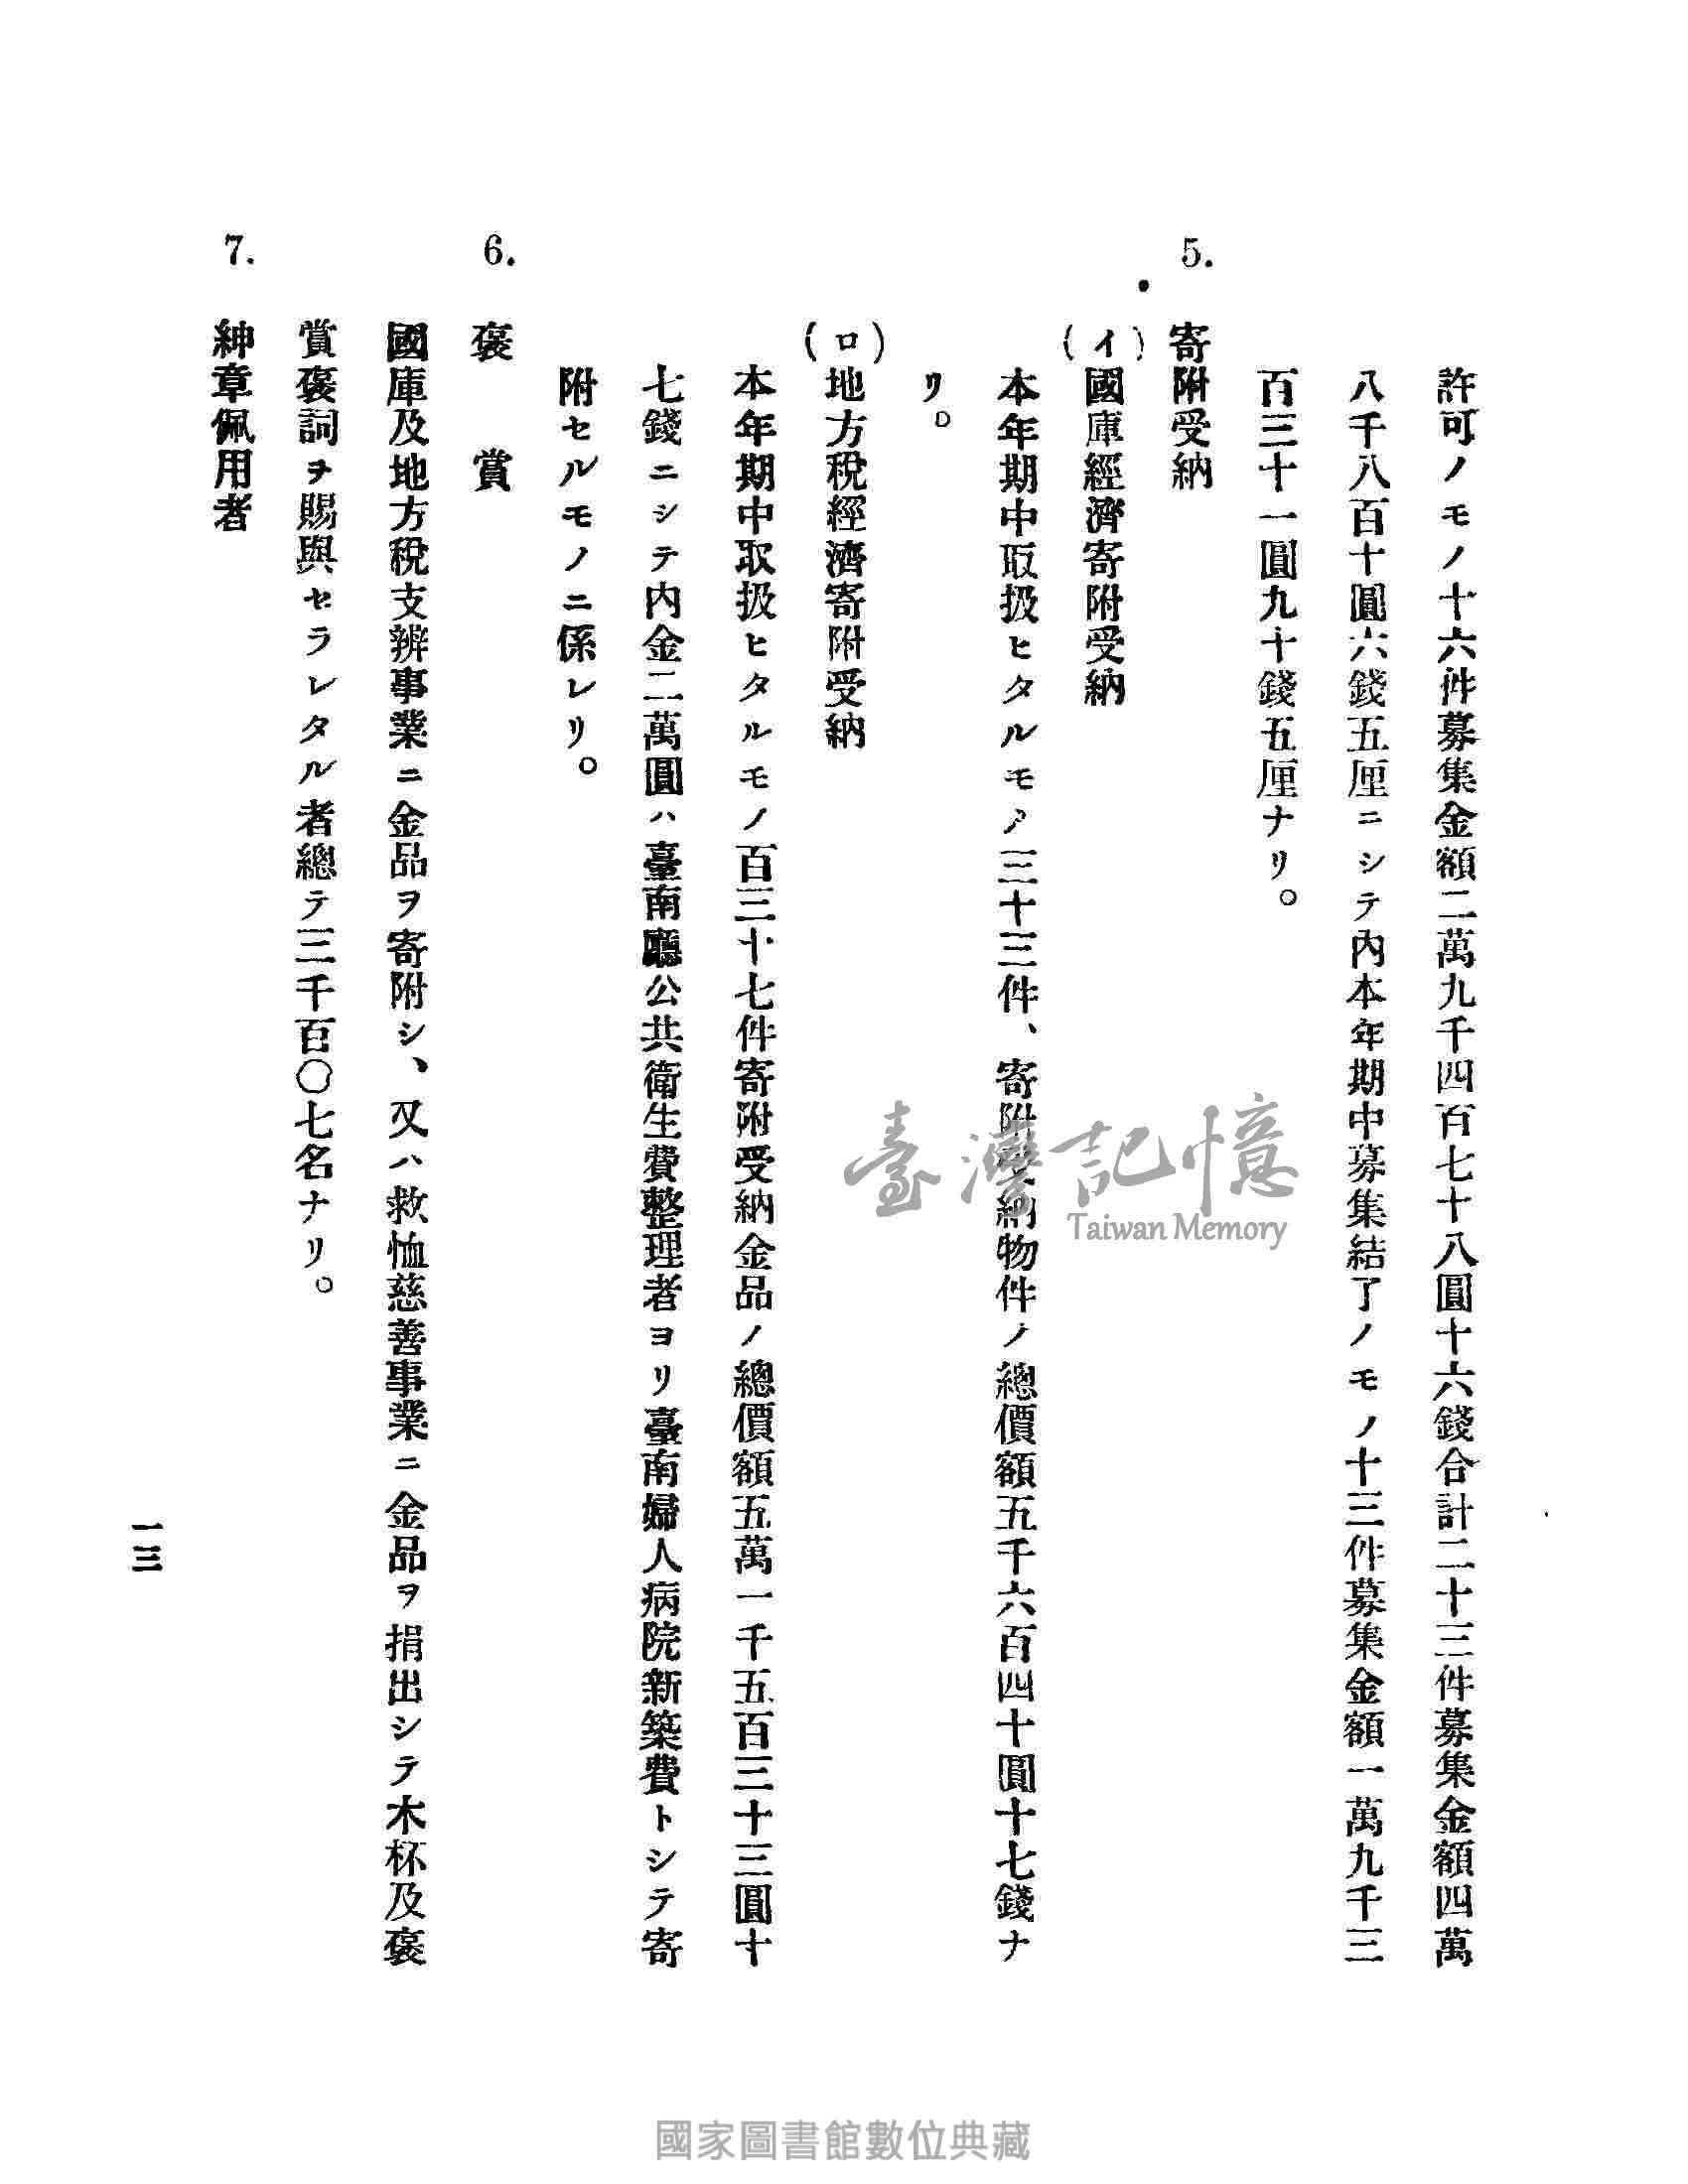 許可ノモノ十六件募集金額二萬九千四百七十八圓十六錢合計二十三件募集金額四萬
八千八百十圓六錢五厘ニシテ內本年期中募集結了ノモノ十三件募集金額一萬九千三
百三十一圓九十錢五厘ナリ。
5. 寄附受納
(イ)國庫經濟寄附受納
本年期中取扱ヒタルモノ三十三件、寄附受納物件ノ總價額五千六百四十圓十七錢ナ
リ。
(ロ)地方稅經濟寄附受納
本年期中取扱ヒタルモノ百三十七件寄附受納金品ノ總價額五萬一千五百三十三圓十
七錢ニシテ內金二萬圓ハ臺南廳公共衛生費整理者ヨリ臺南婦人病院新築費トシテ寄
附セルモノニ係レリ。
6. 褒賞
國庫及地方稅支辨事業ニ金品ヲ寄附シ、又ハ救恤慈善事業ニ金品ヲ捐出シテ木杯及褒
賞褒詞ヲ賜與セラレタル者總テ三千百〇七名ナリ。
7. 紳章佩用者
一三
臺灣記憶
Taiwan Memory
國家圖書館數位典藏